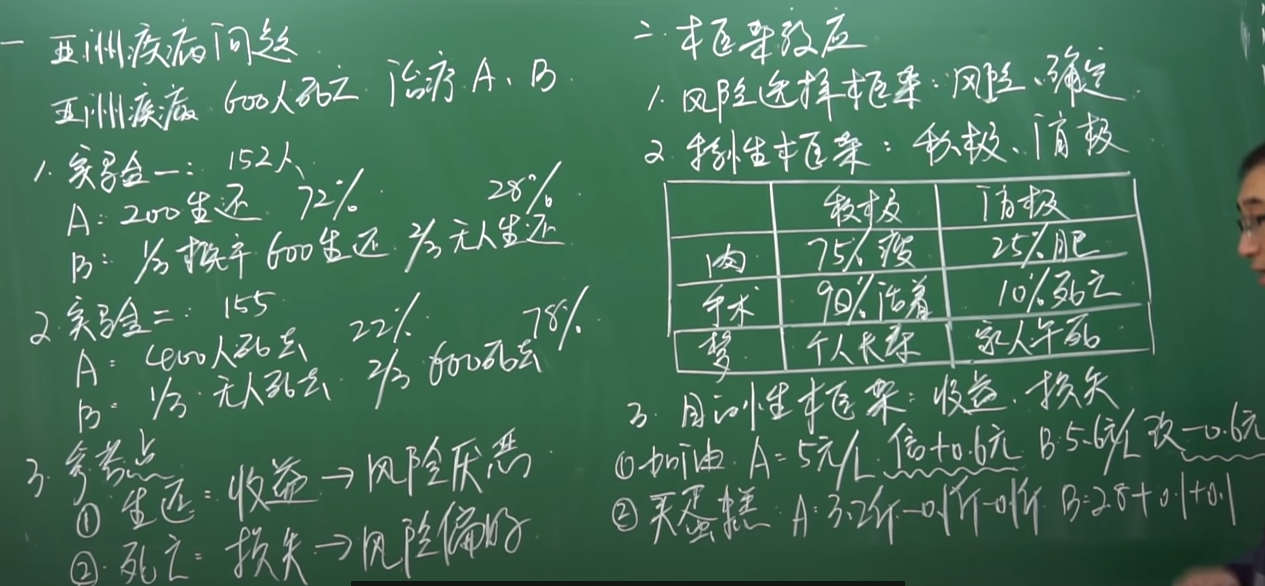 一 亚洲疾病问题
亚洲疾病 600人死亡 治疗A、B
1. 实验一: 152人
A: 200生还 72%
28%
B: 1/3概率600生还 2/3无人生还
2. 实验二: 155
A: 400人死去 22%
78%
B: 1/3 无人死去 2/3 600死去
3. 参考点
① 生还: 收益→风险厌恶
② 死亡: 损失→风险偏好
二. 框架效应
1. 风险选择框架: 风险、确定
2. 特性框架: 积极、消极
积极 消极
肉 75%瘦 25%肥
手术 90%活着 10%死亡
梦 个人长寿 家人早死
3. 目的性框架: 收益、损失
①加油 A=5元/L 信+0.6元 B 5.6元/L 现-0.6元
②买蛋糕 A: 3.2斤-0.1斤-0.1斤 B=2.8+0.1+0.1